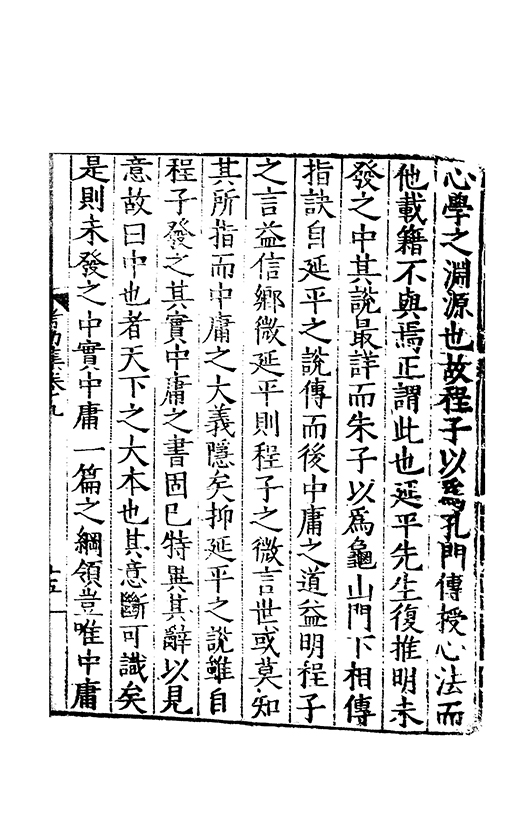 心學之淵源也故程子以爲孔門傳授心法而
他載籍不與焉正謂此也延平先生復推明未
發之中其說最詳而朱子以爲龜山門下相傳
指訣自延平之說傳而後中庸之道益明程子
之言益信鄉微延平則程子之微言世或莫知
其所指而中庸之大義隱矣抑延平之說雖自
程子發之其實中庸之書固已特異其辭以見
意故曰中也者天下之大本也其意斷可識矣
是則未發之中實中庸一篇之綱領豈唯中庸
集卷十九
十五